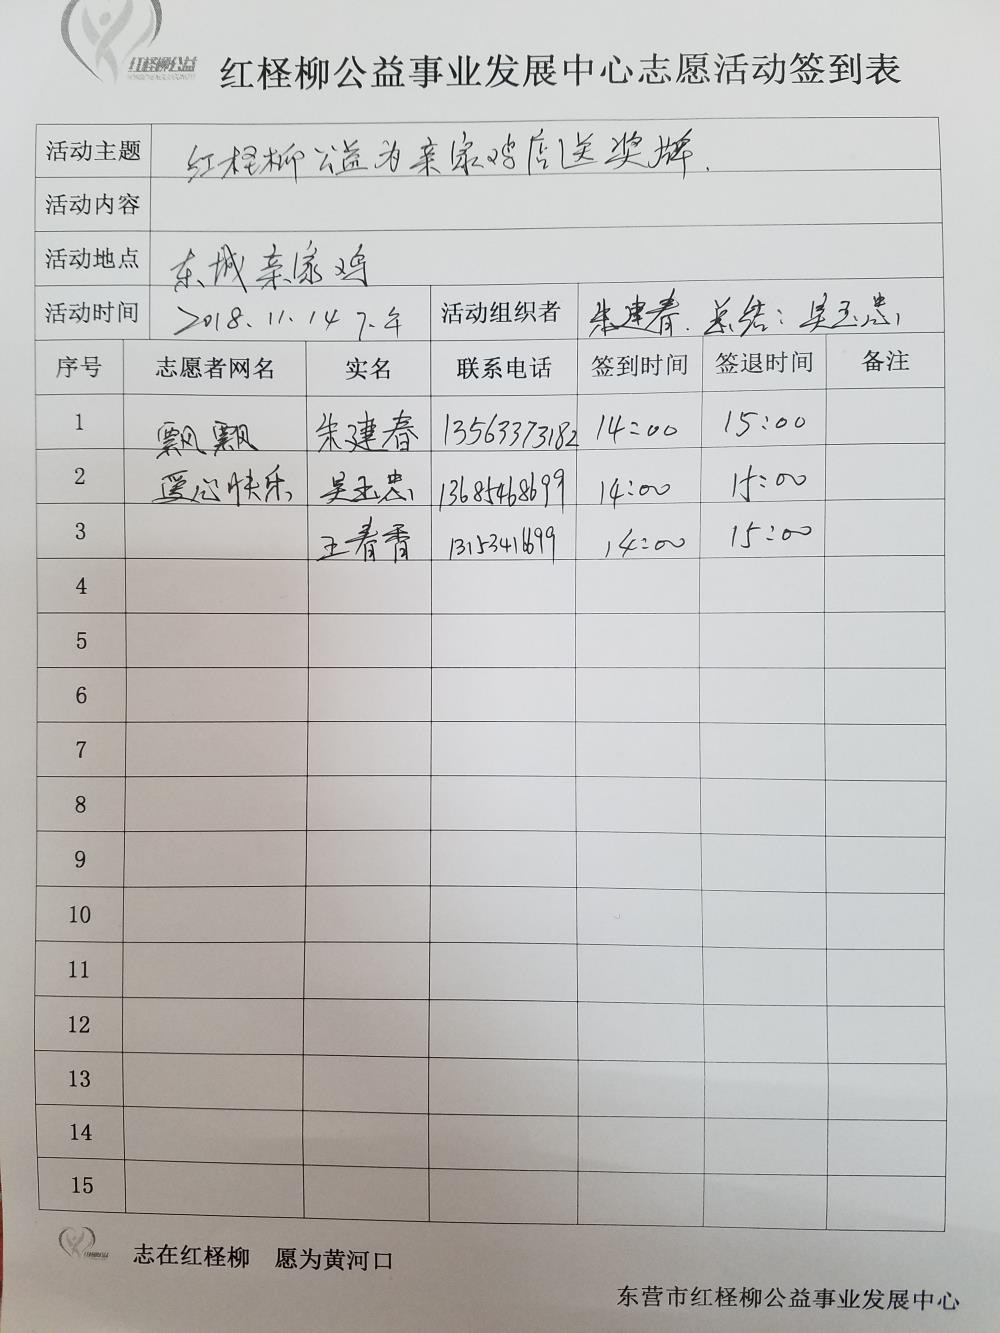 红柽柳公益
红柽柳公益事业发展中心志愿活动签到表
活动主题 红柽柳公益为亲家鸡店送奖牌.
活动内容
活动地点 东城亲家鸡
活动时间 2018.11.14 下午 活动组织者 朱建春. 总结: 吴玉忠
序号 志愿者网名 实名 联系电话 签到时间 签退时间 备注
1 飘飘 朱建春 13563373182 14:00 15:00
2 爱心快乐 吴玉忠 13685468699 14:00 15:00
3 王春香 13153411699 14:00 15:00
4
5
6
7
8
9
10
11
12
13
14
15
志在红柽柳 愿为黄河口
东营市红柽柳公益事业发展中心